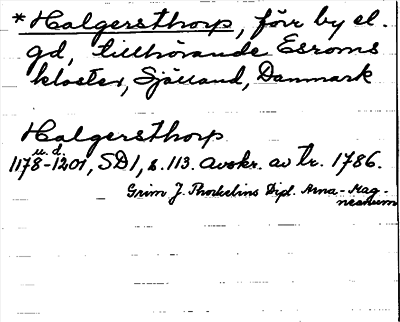 * Halgersthorp, förr by el.
gd, tillhörande Esroms
kloster, Själland, Danmark
Halgersthorp
u. d.
1178-1201, SD1, s. 113. Avskr. av tr. 1786.
Grim J. Thorkelins Dipl. Arna-Mag-
neanum